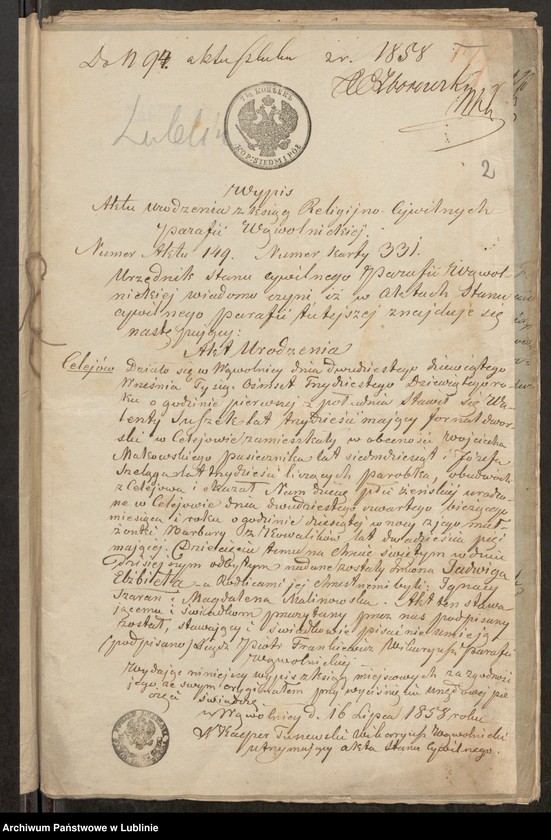 Do N 94. aktu ślubu z r. 1858
7½ KOPIEJEK
KOP: SIEDM I PÓŁ
Lublin
2
Wypis
Aktu urodzenia z Ksiąg Religijno-Cywilnych
Parafii Wąwolnickiej.
Numer Aktu 149. Numer karty 331.
Urzędnik Stanu Cywilnego Parafii Wąwol-
nickiej wiadomo czyni, iż w Aktach Stanu
cywilnego parafii tutejszej znajduje się
następujący:
Akt Urodzenia
Celejów Działo się w Wąwolnicy dnia dwudziestego dziewiątego
Września Tysiąc Ośmset Trzydziestego Dziewiątego ro-
ku o godzinie pierwszej z południa Stawił się Wa-
lenty Suszek lat trzydzieści mający fornal dwor-
ski w Celejowie zamieszkały w obecności Wojciecha
Makowskiego pasiecznika lat siedmdziesiąt i Józefa
Szeląga lat trzydzieści liczących parobka, obudwóch
z Celejowa i okazał Nam dziecię płci żeńskiej urodzo-
ne w Celejowie dnia dwudziestego czwartego bieżącego
miesiąca i roku o godzinie dziesiątej w nocy z jego mał-
żonki Barbary z Kowalików lat dwadzieścia pięć
mającej. Dziecięciu temu na Chrzcie świętym w dniu
dzisiejszym odbytym nadane zostały imiona Jadwiga
Elżbieta a Rodzicami jej chrzestnemi byli: Ignacy
Szaran i Magdalena Malinowska. Akt ten stawa-
jącemu i świadkom przeczytany przez nas podpisany
został, stawający i świadkowie pisać nie umieją
(podpisano) Xiądz Piotr Frankiewicz Wikaryusz Parafii
Wąwolnickiej
Wydając niniejszy wypis z ksiąg miejscowych za zgodność
jego ze swym oryginałem przy wyciśnieniu urzędowej pie-
częci świadczę.
w Wąwolnicy d. 16 Lipca 1858 roku
X Kacper Wikaryusz Wąwolnicki
utrzymujący akta stanu Cywilnego.
Archiwum Państwowe w Lublinie